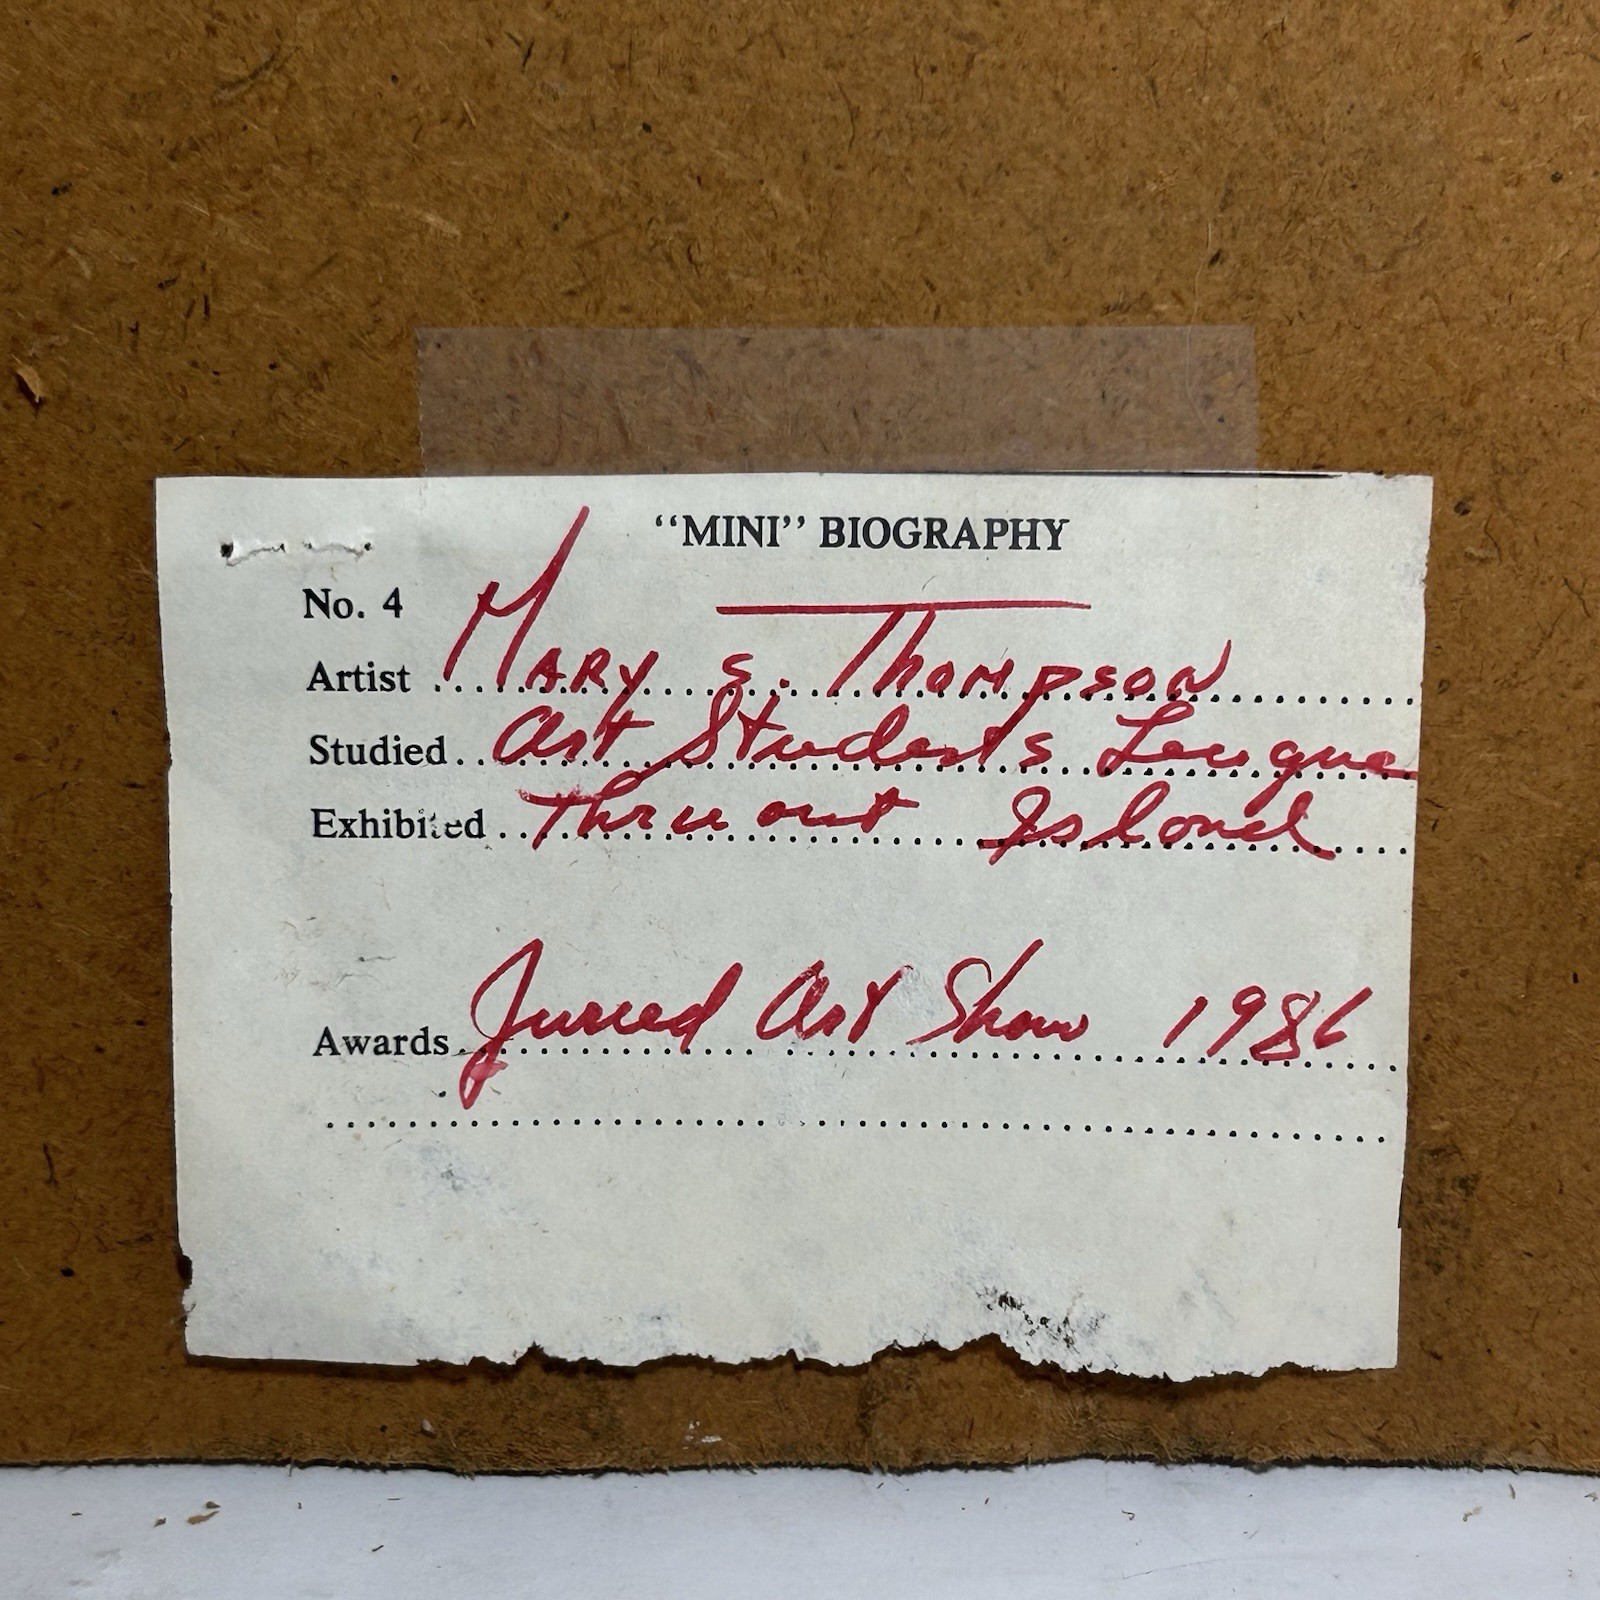 “MINI” BIOGRAPHY
No. 4
Artist MARY S. THOMPSON
Studied Art Students League
Exhibited Thruout Island
Awards Juried Art Show 1986